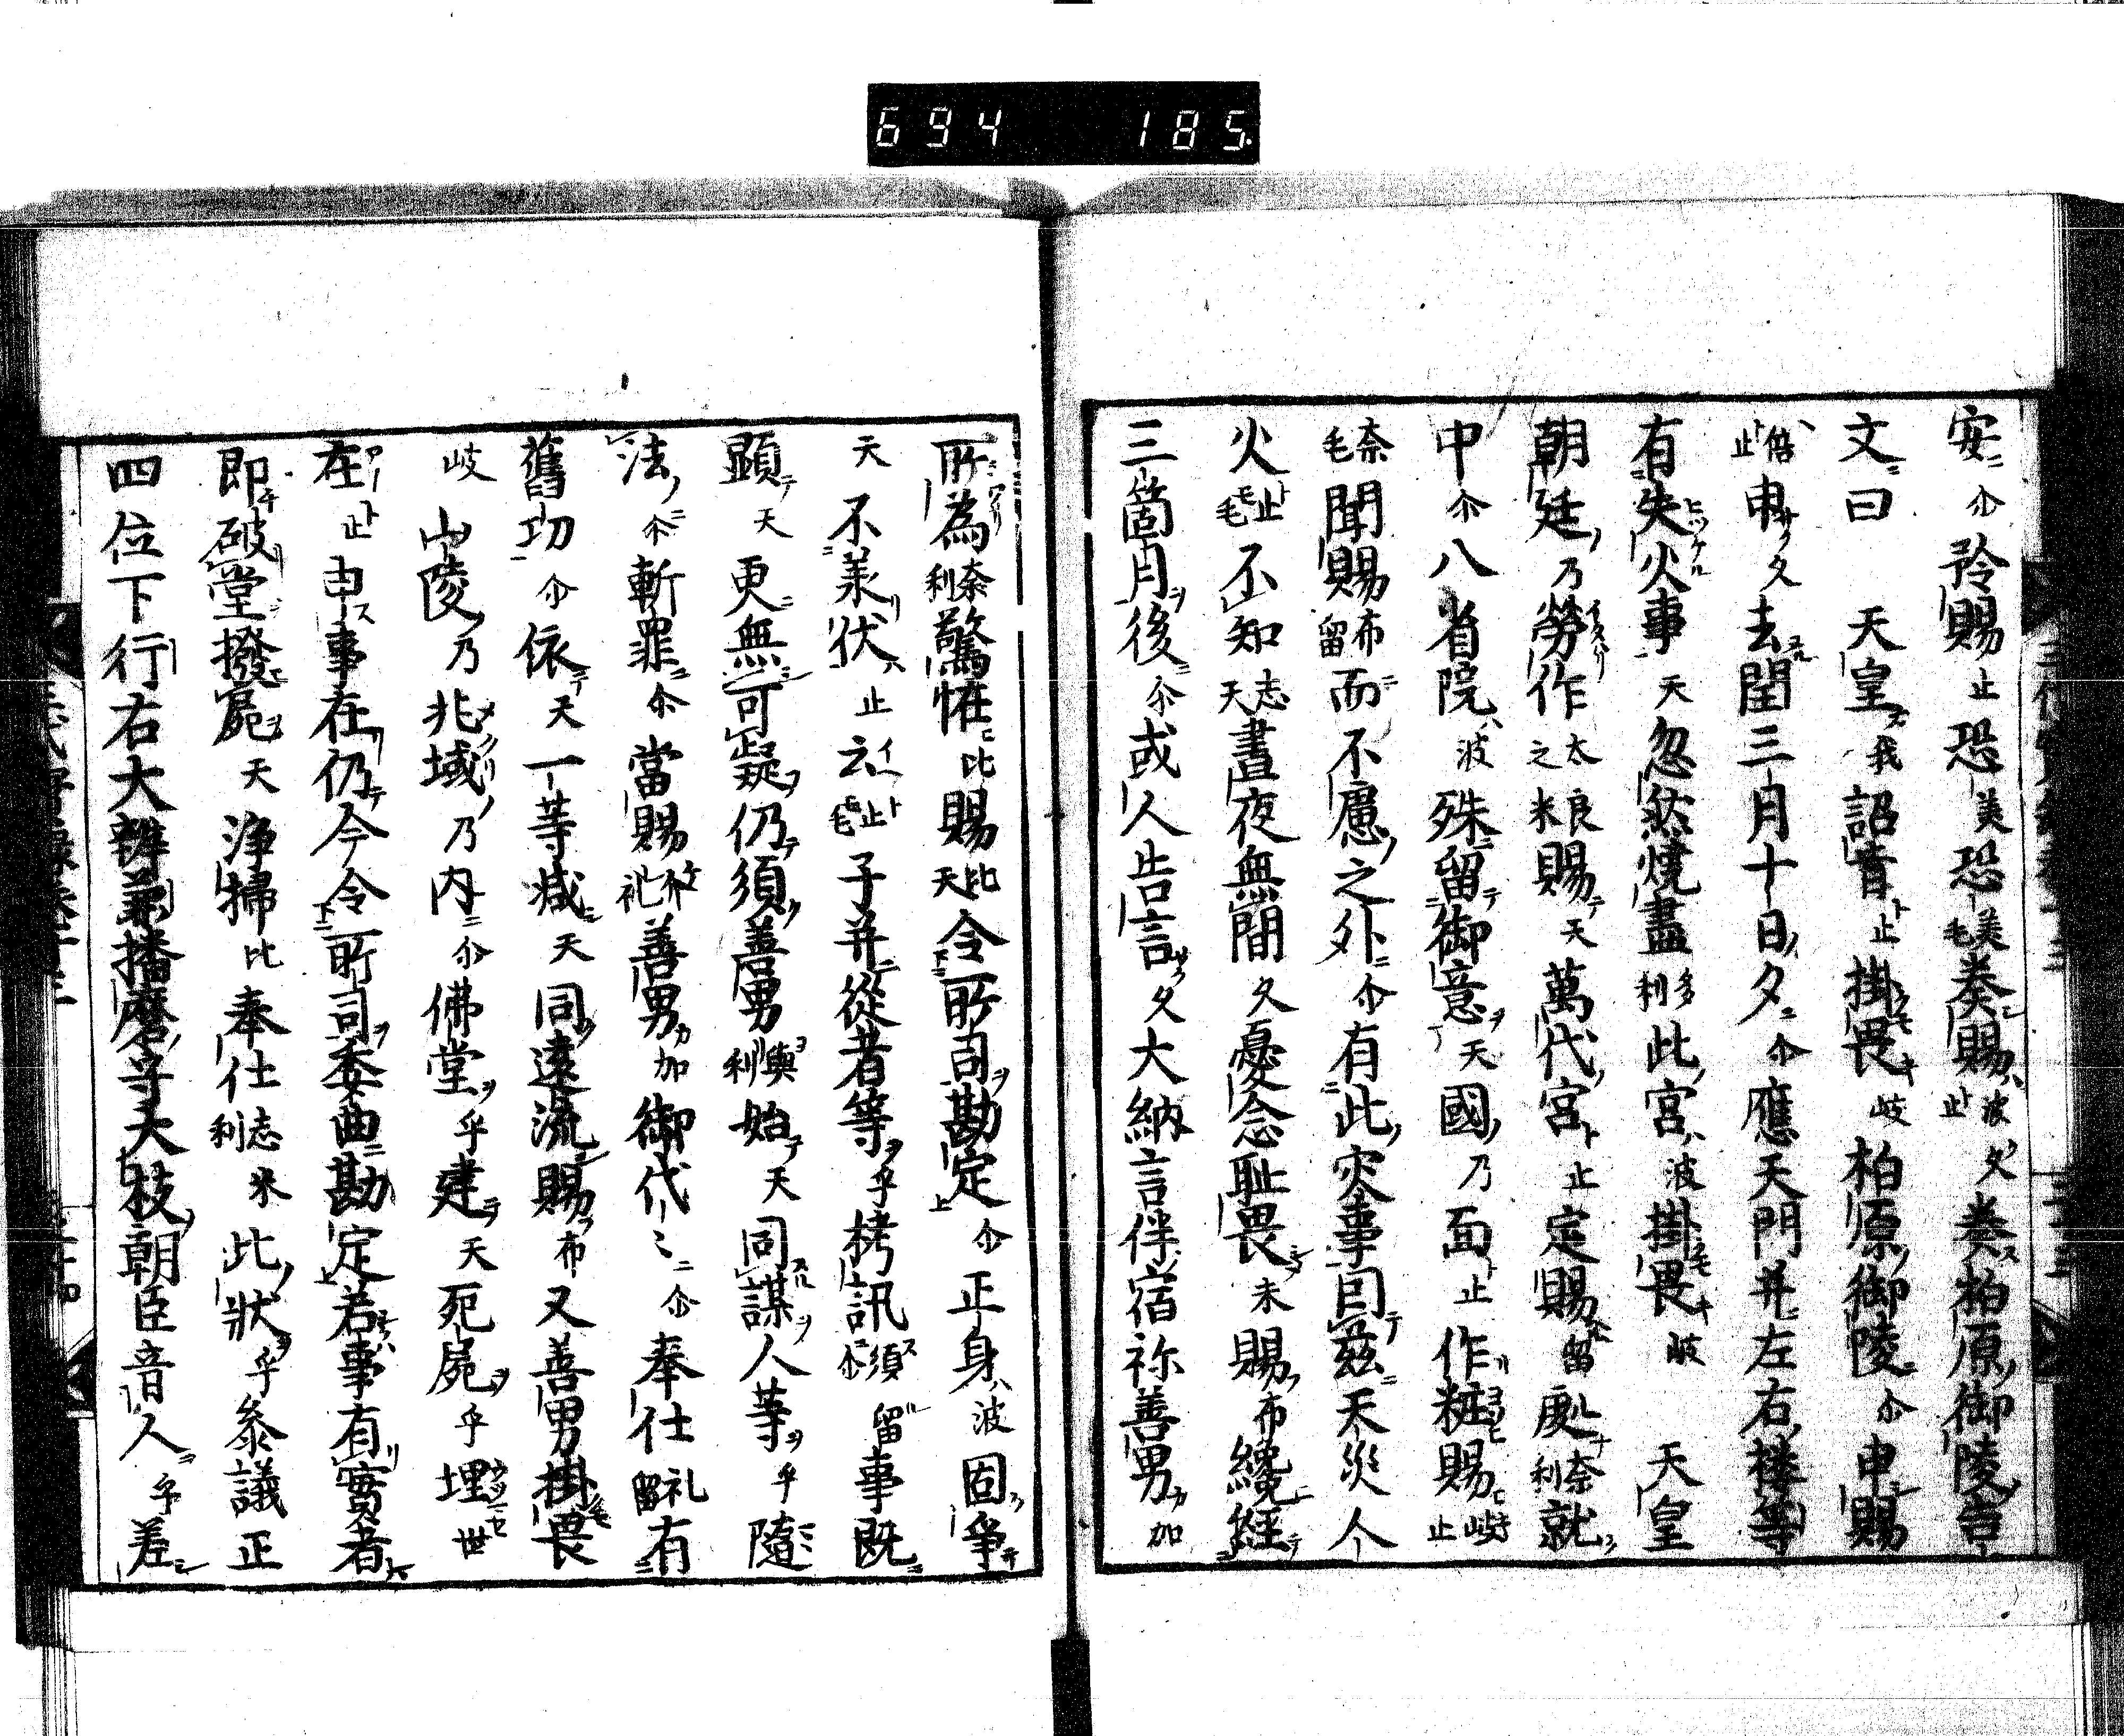 694 185
安尓矜賜止恐美恐美毛奏賜波止久奏柏原御陵告
文曰天皇我詔旨止掛畏岐柏原御陵尓申賜
倍止申久去閏三月十日夕尓應天門并左右楼等
有失火事天忽然焼盡多利此宮波掛畏岐天皇
朝廷乃勞作太之米良賜天萬代宮止定賜留處奈利就
中尓八省院波殊留御意天國乃面止作粧賜岐止
奈毛聞賜布留而不慮之外尓有此灾事因茲天災人
火止毛不知志天晝夜無間久憂念耻畏末賜布纔経
三箇月後尓或人告言久大納言伴宿祢善男加
所為奈利驚恠比賜比天令所司勘定尓正身波固争
天不羕伏止云止毛子并從者等乎拷訊須留尓事既
顕天更無可疑仍須善男與利始天同謀人等乎隨
法尓斬罪尓當賜礼善男加御代〻尓奉仕礼留有
舊功尓依天一等減天同遠流賜布又善男掛畏
岐山陵乃兆域乃内尓佛堂乎建天死屍乎埋世
在止申事在仍今令所司委曲勘定若事有實者
即破堂撥屍天浄掃比奉仕志米利此狀乎叅議正
四位下行右大辨兼播磨守大枝朝臣音人乎差